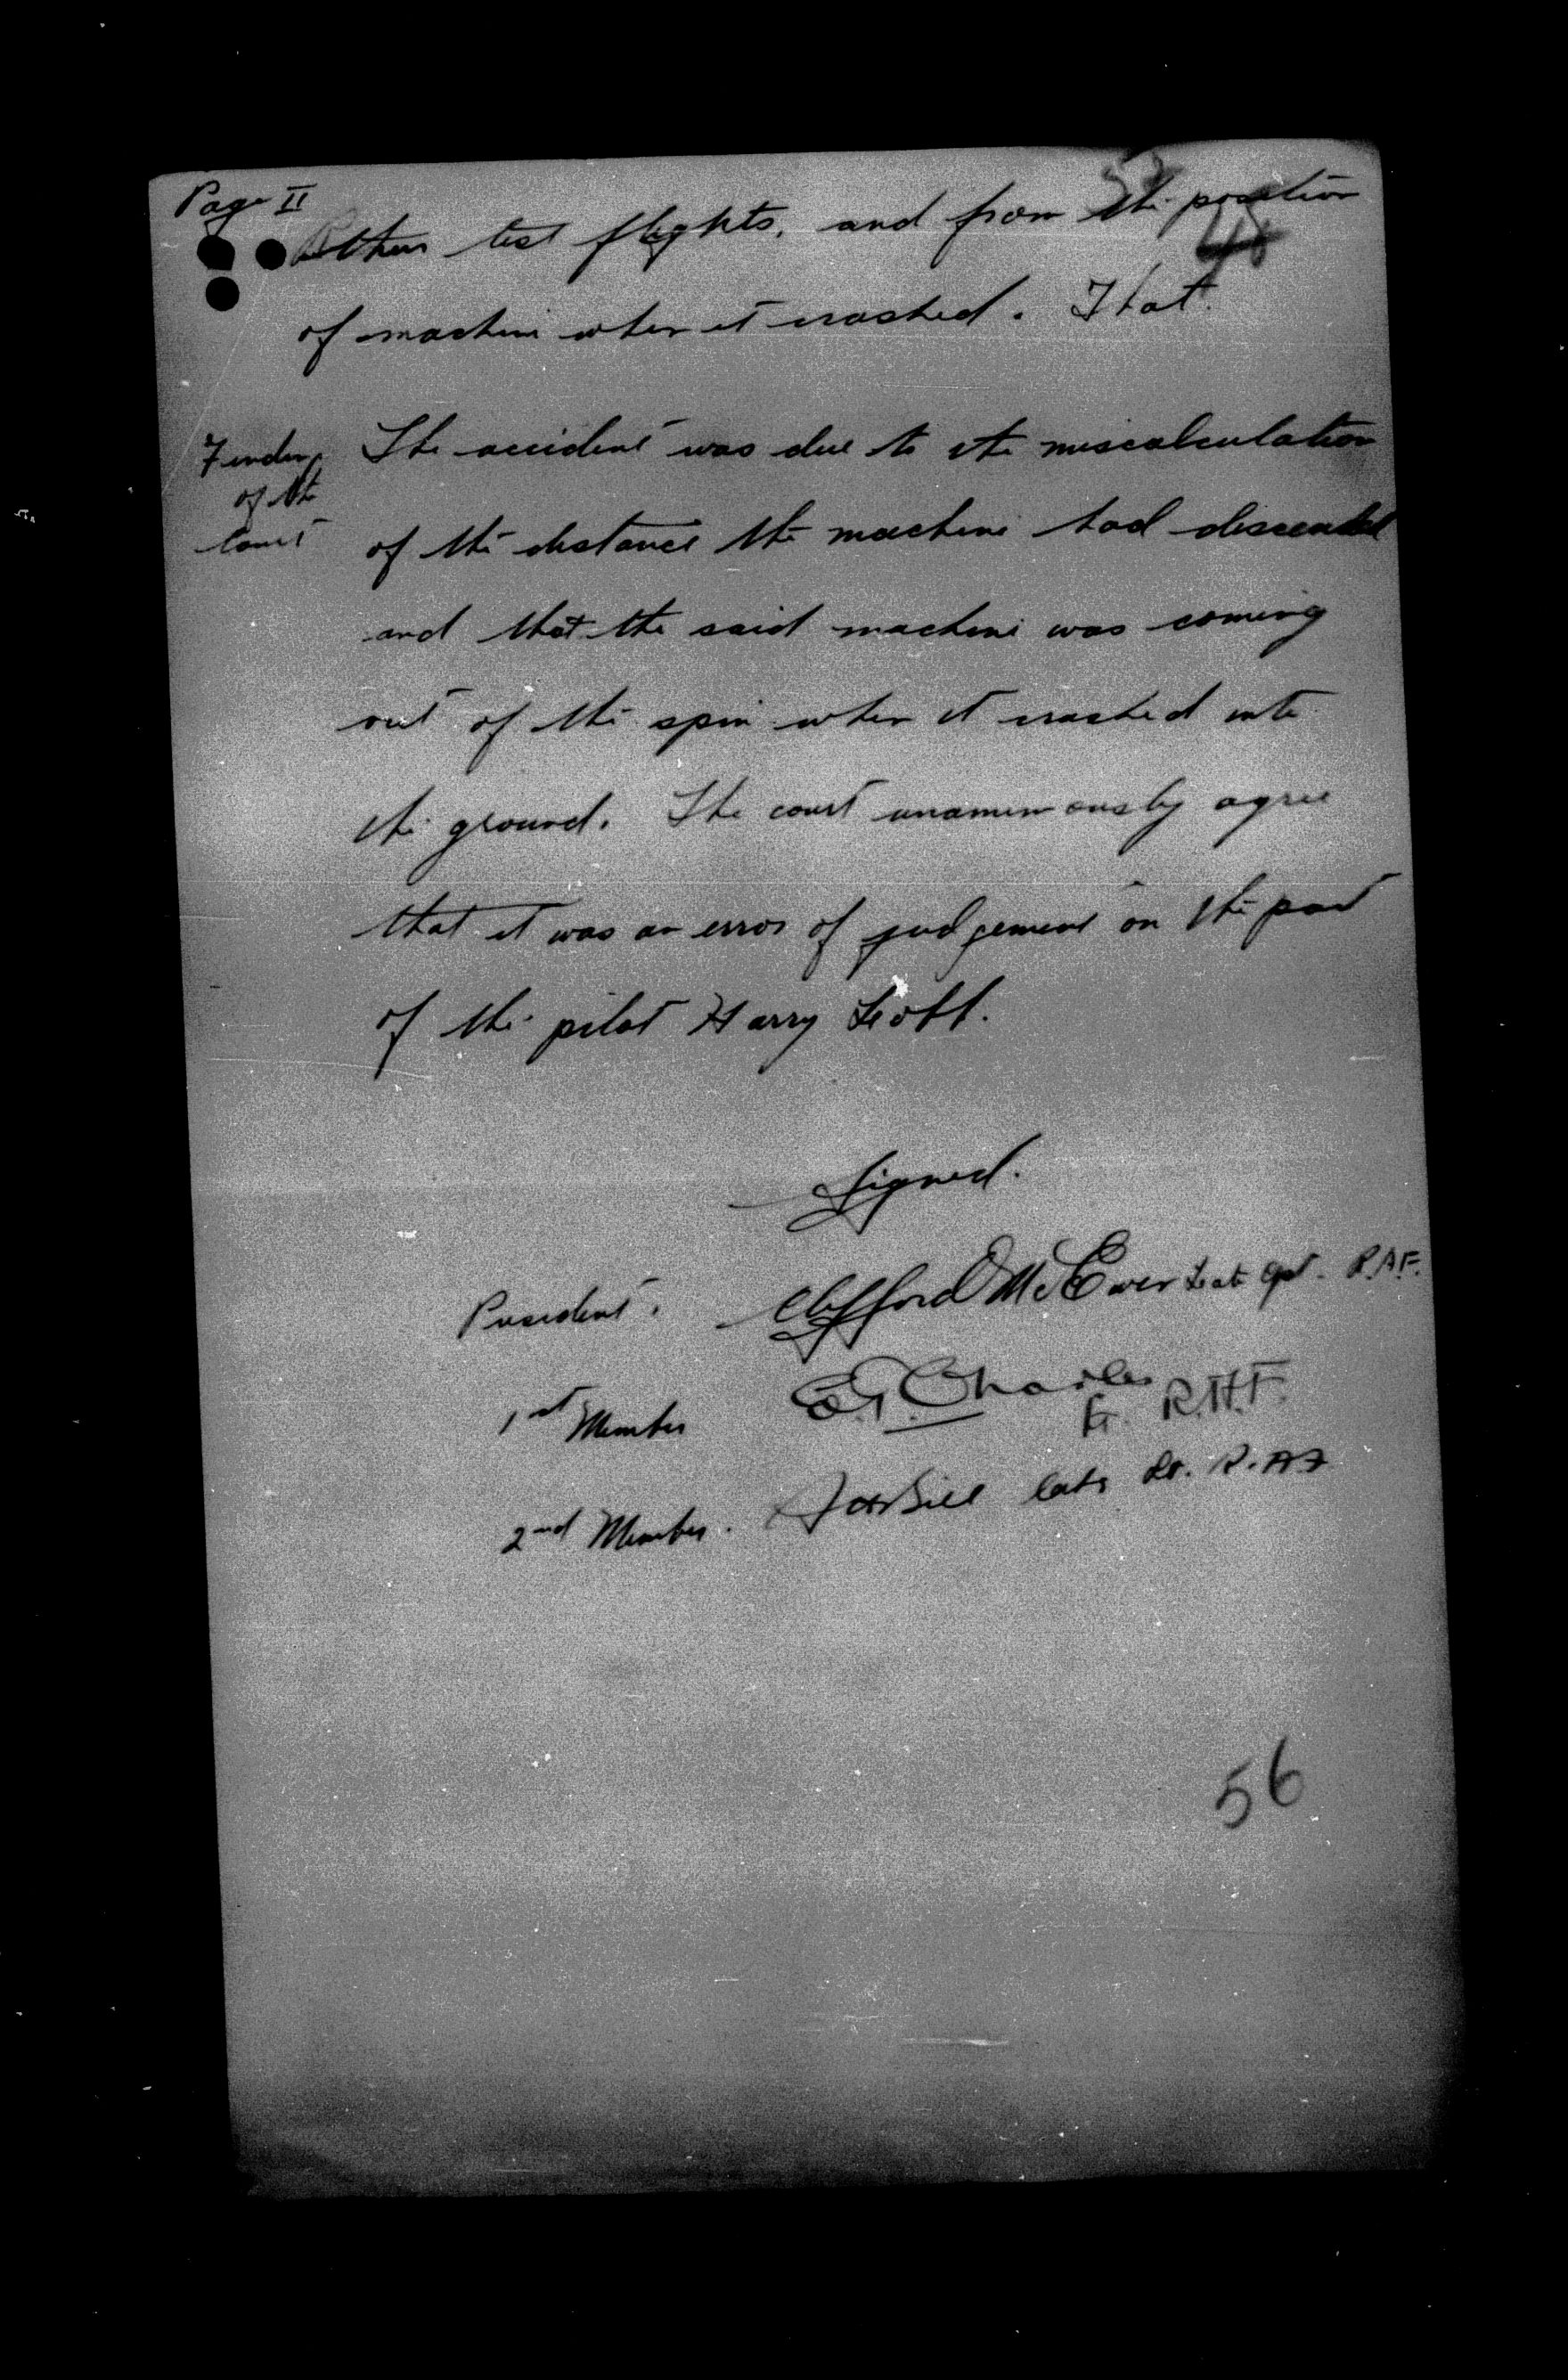 Page II
other test flights, and from the position
of machine when it crashed. That
Finding of the Court
The accident was due to the miscalculation
of the distance the machine had descended
and that the said machine was coming
out of the spin when it crashed into
the ground. The court unanimously agree
that it was an error of judgement on the part
of the pilot Harry
Signed.
President. Clifford McEwen late Capt. R.A.F.
1st Member E. Charles Lt. R.A.F.
2nd Member. late Lt. R.A.F
56